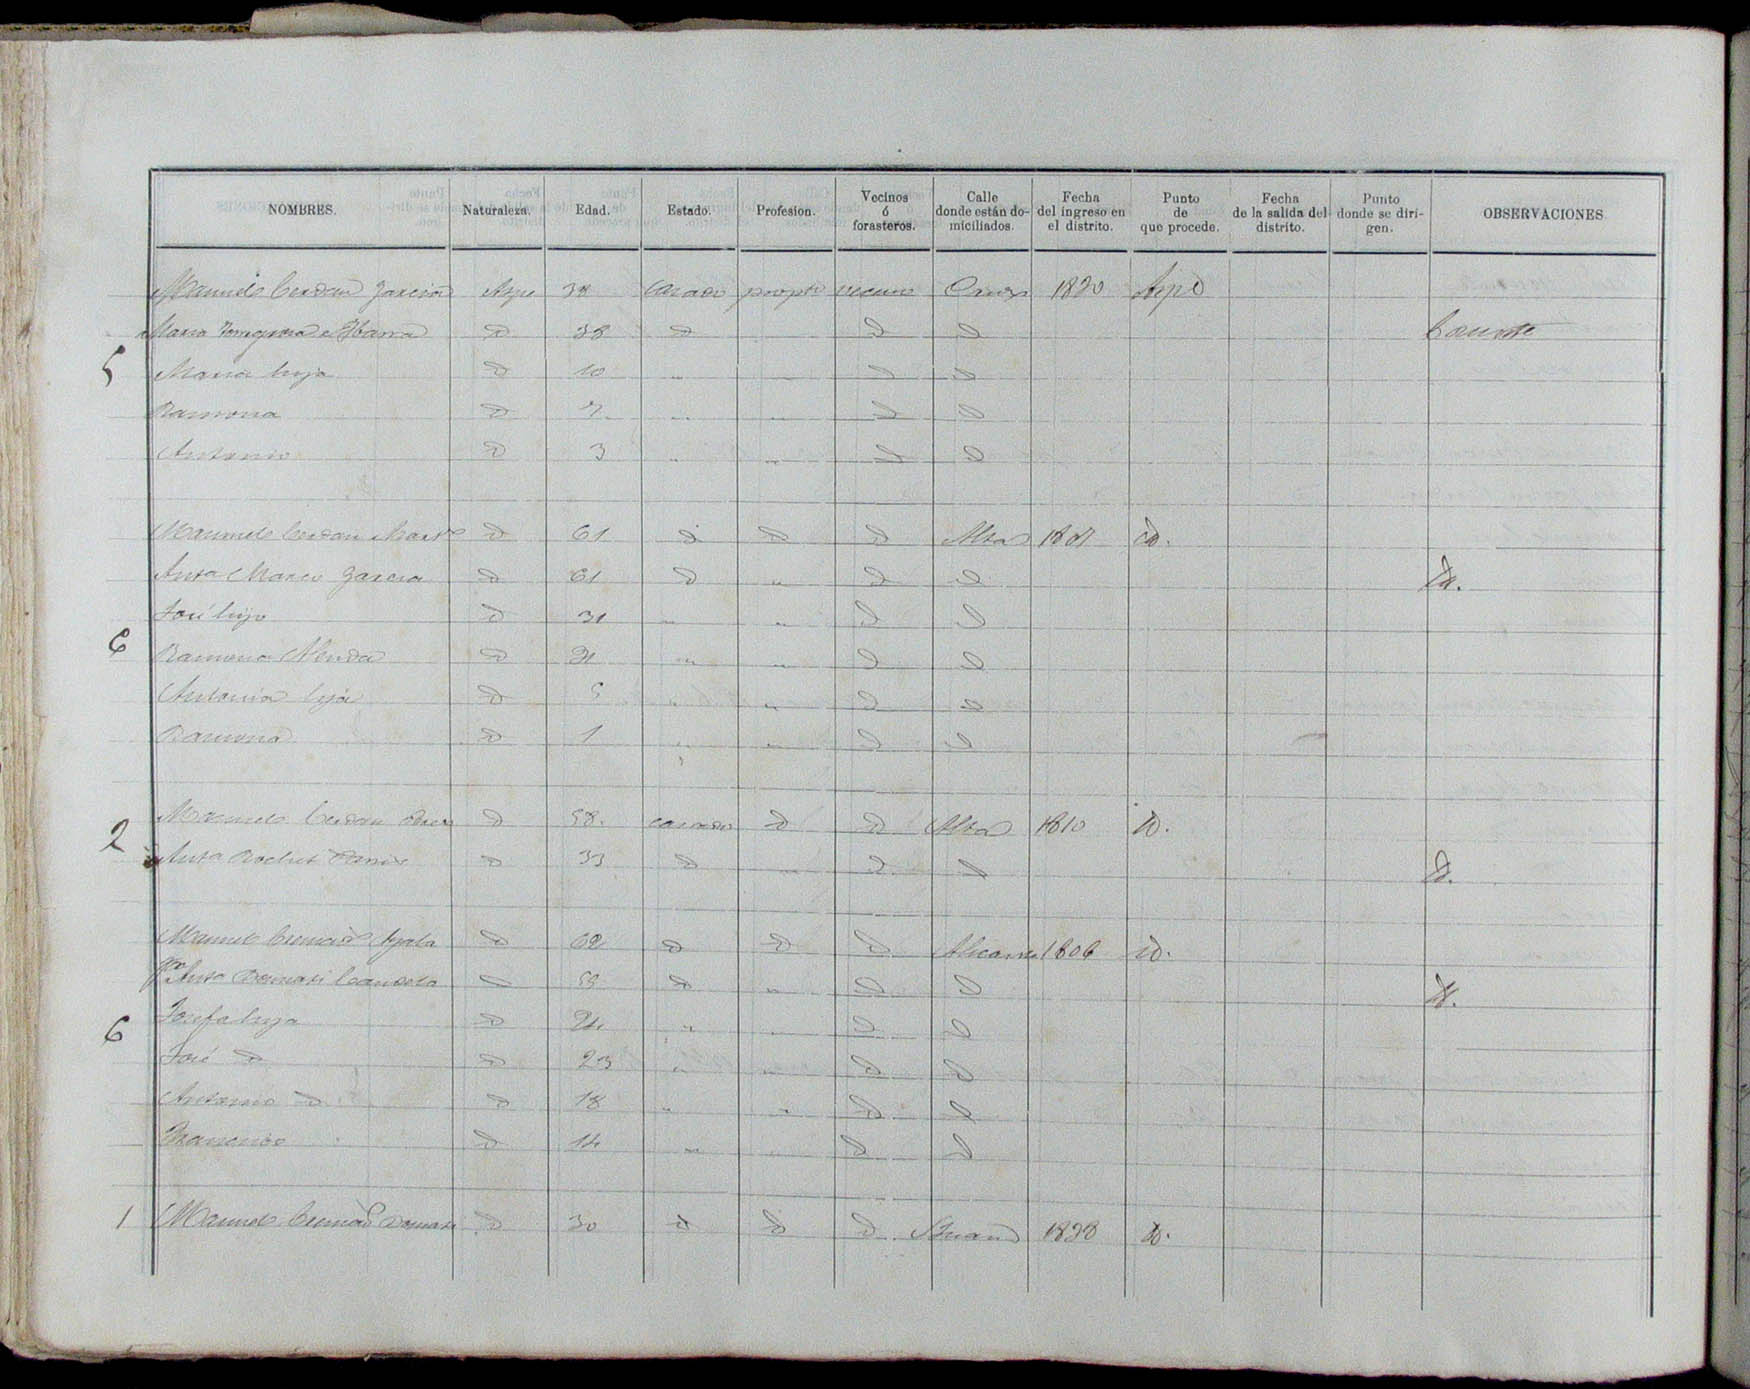 NOMBRES. Naturaleza. Edad. Estado. Profesion. Vecinos ó forasteros. Calle donde están domiciliados. Fecha del ingreso en el distrito. Punto de que procede. Fecha de la salida del distrito. Punto donde se dirigen. OBSERVACIONES
Manuel Cerdan Garcia Aspe 38 Casado propto vecino Cruz 1820 Aspe
Maria e Ybarra D 38 D D D Consorte
5 Maria hija D 10 " " D D
Ramona D 7 " " D D
Antonio D 3 " " D D
Manuel Cerdan D 61 D D D Alta id.
Anta Marco Garcia D 61 D " D D id.
José hijo D 31 " " D D
6 Ramona D 21 " " D D
Antonia hija D 5 " " D D
Ramona D 1 " " D D
2 Manuel Cerdan D 58. casado D D Alta 1810 id.
Anta D 33 D " D D id.
Manuel Ayala D 62 D D D Alicante 1806 id.
Anta Candela D D " D D id.
6 Josefa hija D 24 " " D D
José D D 23 " " D D
Antonio D D 18 " " D D
Francisco D 14 " " D D
1 Manuel D 30 D D D 1828 id.